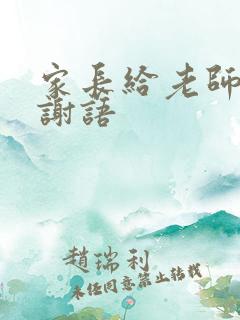 家長給老師
謝語
趙瑞利
未經同意禁止轉載